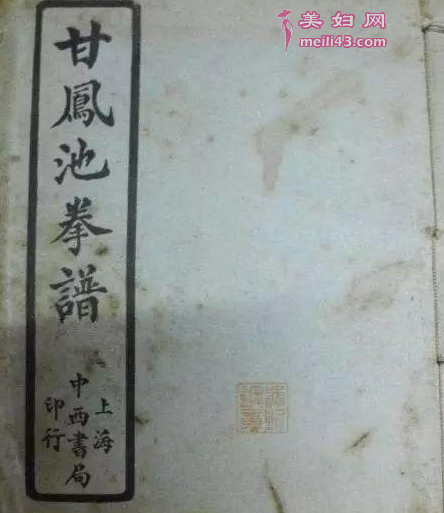 美妇网
meili43.com
甘鳳池拳譜
上海
中西書局
印行